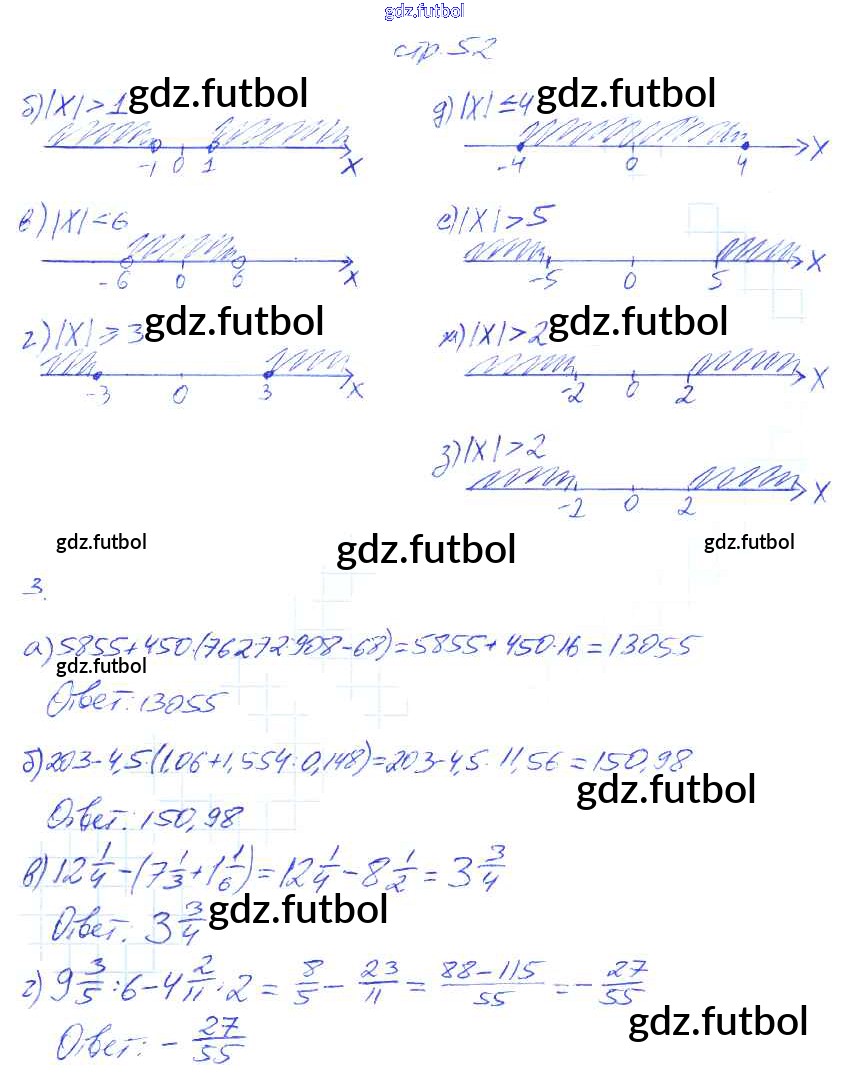 gdz.futbol
стр. 52
б) |X| > 1 gdz.futbol
-1 0 1 X
в) |X| < 6
-6 0 6 X
г) |X| ≥ 3 gdz.futbol
-3 0 3 X
д) |X| ≤ 4 gdz.futbol
-4 0 4 X
е) |X| > 5
-5 0 5 X
ж) |X| > 2 gdz.futbol
-2 0 2 X
з) |X| > 2
-2 0 2 X
gdz.futbol gdz.futbol gdz.futbol
3.
а) 5855+450·(76272:908-68)=5855+450·16=13055
gdz.futbol
Ответ: 13055
б) 203-4,5·(1,06+1,554:0,148)=203-4,5·11,56=150,98
gdz.futbol
Ответ: 150,98
в) 12 1/4 - (7 1/3 + 1 1/6) = 12 1/4 - 8 1/2 = 3 3/4
Ответ: 3 3/4 gdz.futbol
г) 9 3/5 : 6 - 4 2/11 : 2 = 8/5 - 23/11 = 88-115/55 = - 27/55
gdz.futbol
Ответ: - 27/55